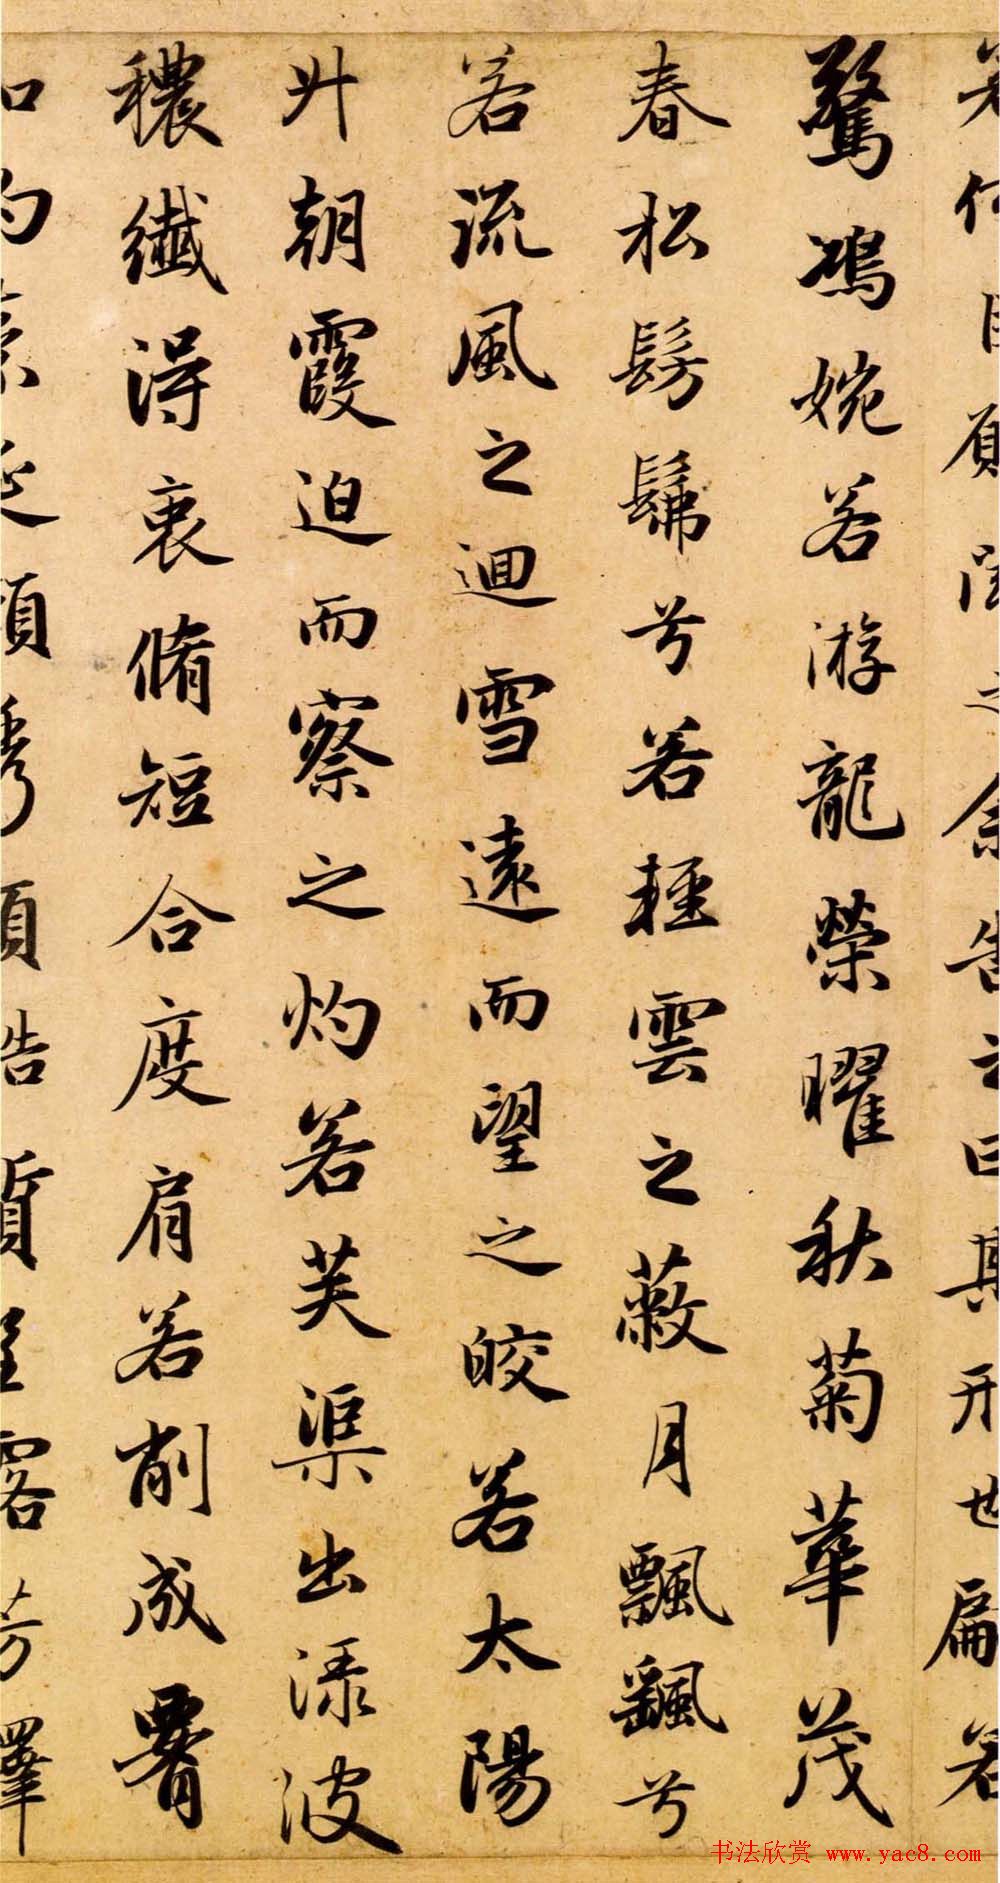 若何臣願聞之余告之曰其形也翩若
驚鴻婉若游龍榮曜秋菊華茂
春松髣髴兮若輕雲之蔽月飄颻兮
若流風之迴雪遠而望之皎若太陽
升朝霞迫而察之灼若芙渠出淥波
穠纖得衷脩短合度肩若削成腰
如約素延頸秀項皓質呈露芳澤
书法欣赏 www.yac8.com